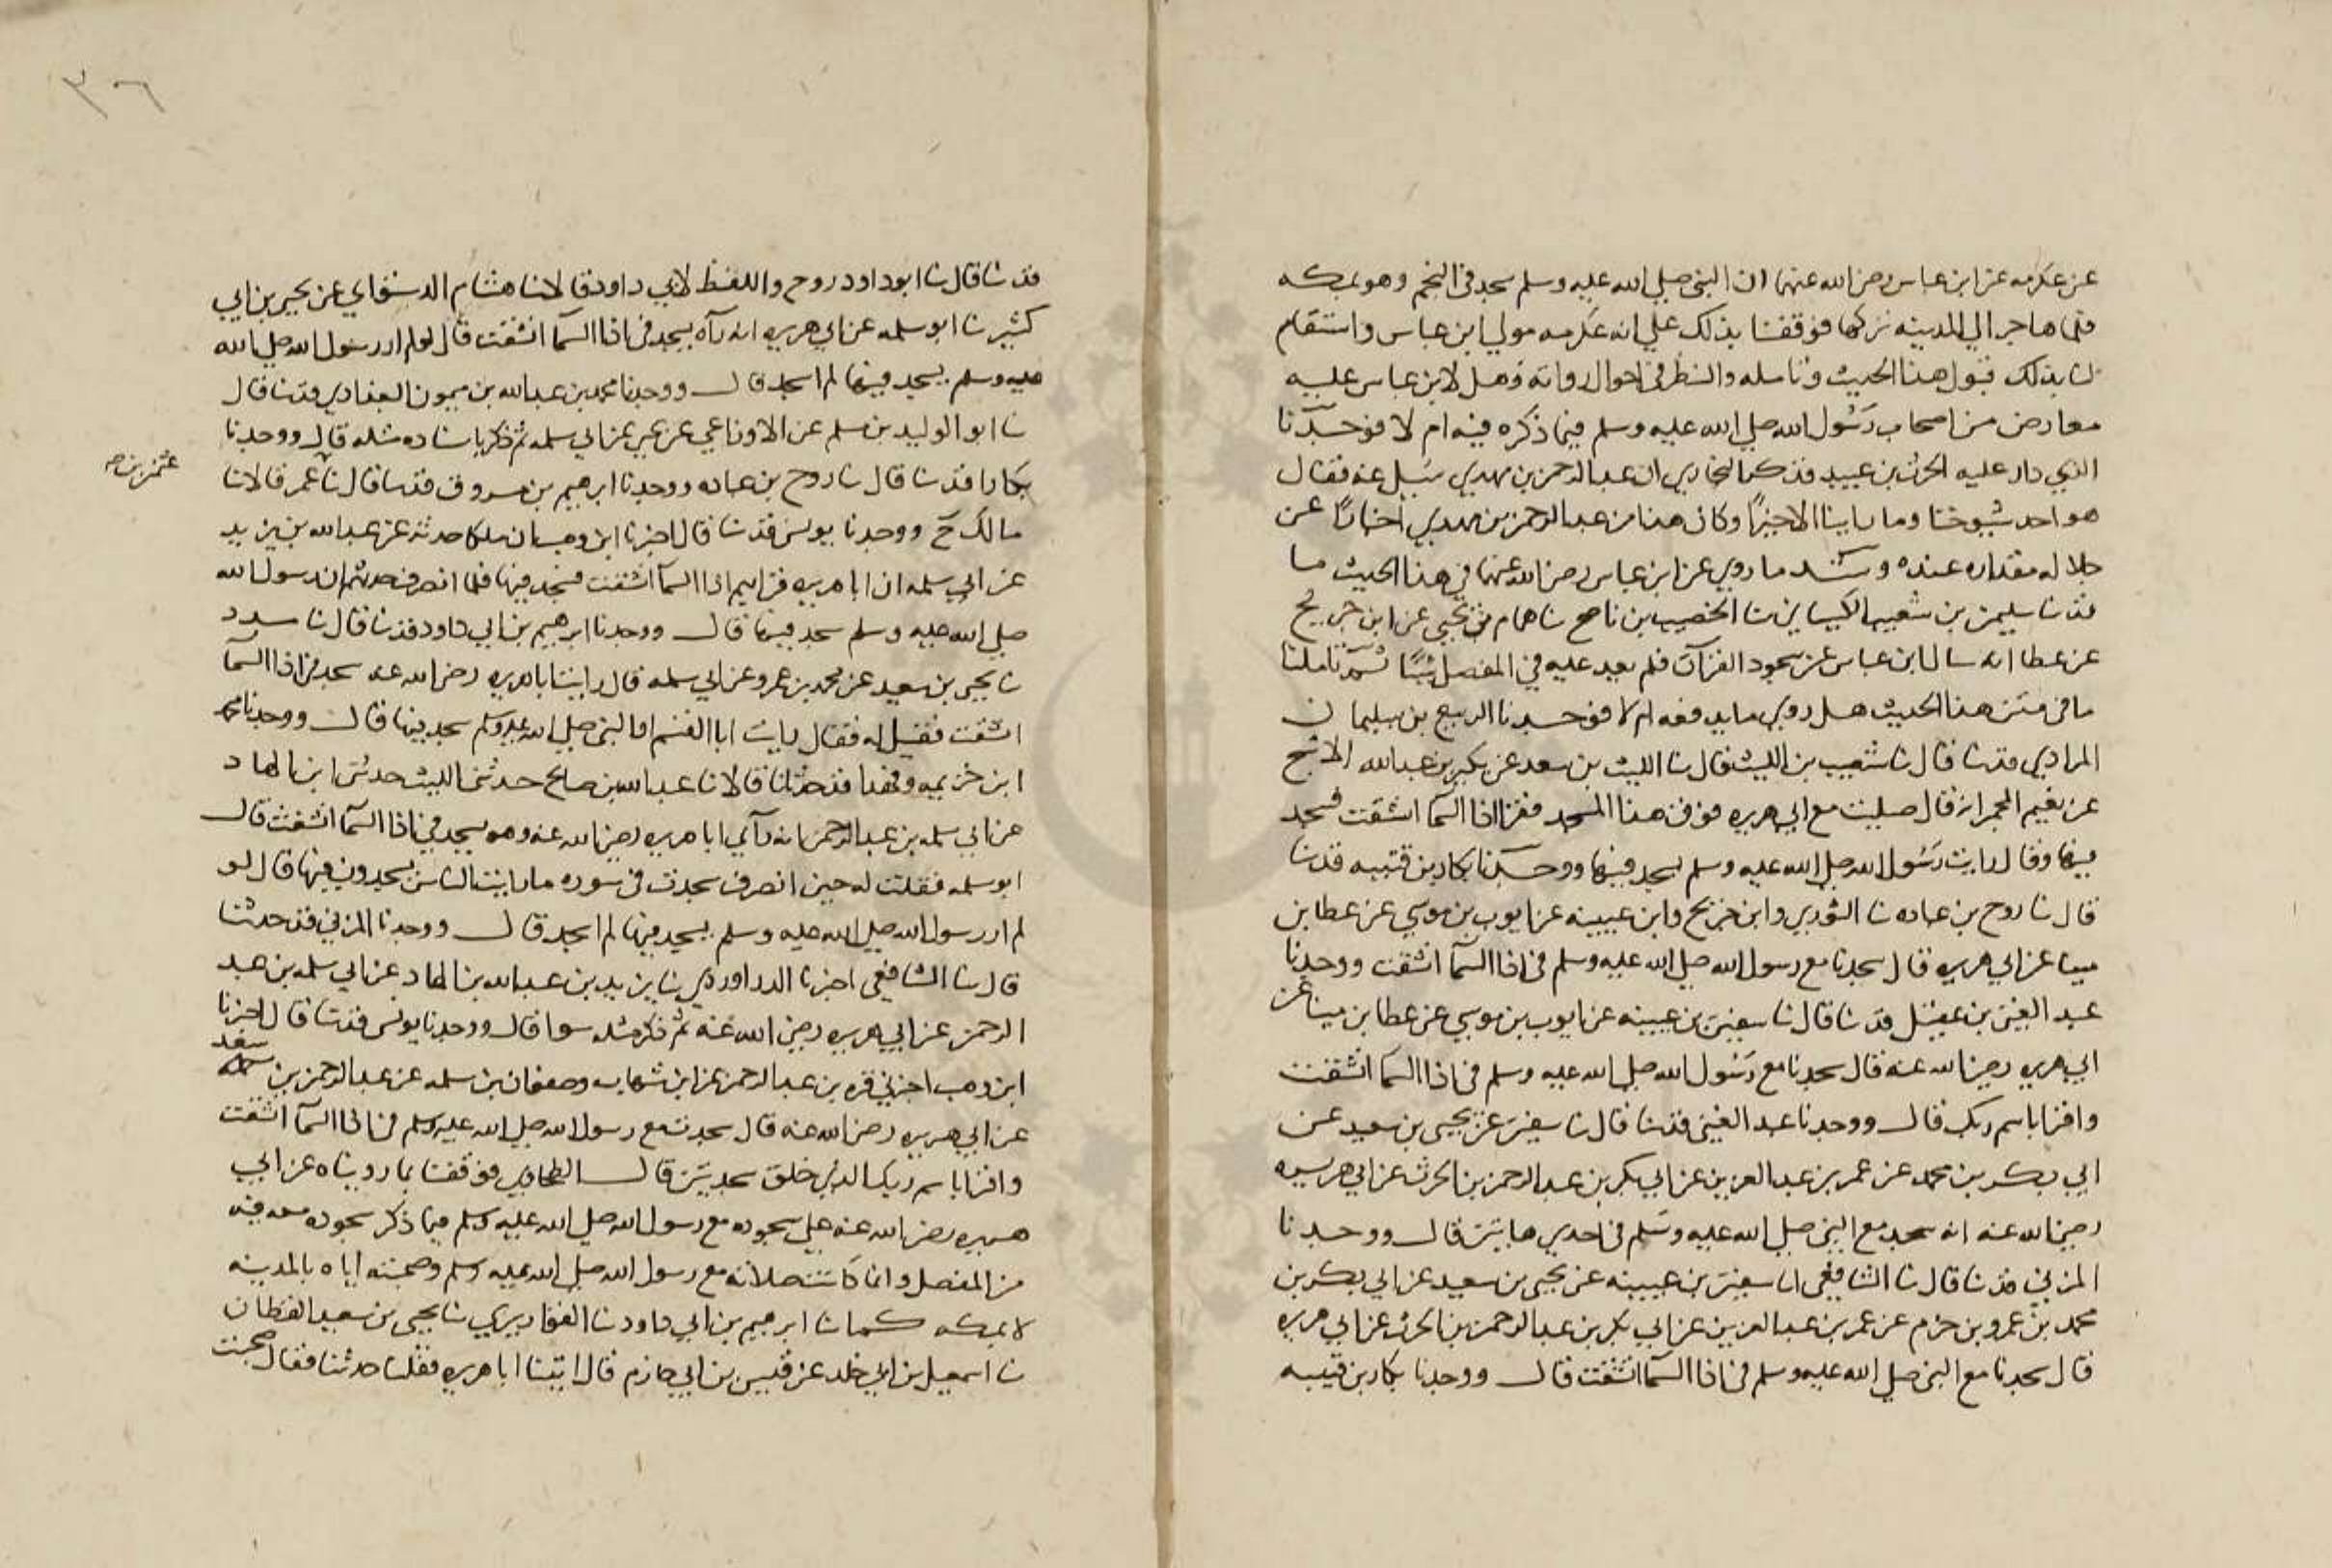 عن عكرمه عن ابن عباس رضى الله عنهما ان النبى صلى الله عليه وسلم سجد فى النجم وهو بمكه
فلما هاجر الي المدينه تركها فوقفنا بذلك علي انه عكرمه مولي ابن عباس واستقام
لنا بذلك قبول هذا الحديث وتامله والنظر فى احوال رواته وهل لابن عباس عليه
معارض من اصحاب رسول الله صلي الله عليه وسلم فيما ذكره فيه ام لا فوجدنا
الذي دار عليه الحرث بن عبيد قد ذكر البخاري ان عبد الرحمن بن مهدي سئل عنه فقال
هو احد شيوخنا وما راينا الا خيرًا وكان هذا من عبد الرحمن بن مهدي اخبارًا عن
جلاله مقداره عنده وسند ما روي عن ابن عباس رضى الله عنهما في هذا الحديث ما
قد نا سليمن بن شعيب الكيسانى نا الخصيب بن ناصح نا همام بن يحيى عن ابن جريج
عن عطا انه سال ابن عباس عن سجود القرآن فلم يعد عليه في المفصل شيًا ثم تاملنا
ما فى متن هذا الحديث هل روي ما يدفعه ام لا فوجدنا الربيع بن سليمان
المرادي قد نا قال نا شعيب بن الليث قال نا الليث بن سعد عن بكير بن عبد الله الاشج
عن نعيم المجمر انه قال صليت مع ابي هريره فوق هذا المسجد فقرا اذا السما انشقت فسجد
فيها وقال رايت رسول الله صلي الله عليه وسلم يسجد فيها ووجدنا بكار بن قتيبه قد نا
قال نا روح بن عباده نا الثوري وابن جريج وابن عيينه عن ايوب بن موسي عن عطا بن
مينا عن ابي هريره قال سجدنا مع رسول الله صلي الله عليه وسلم فى اذا السمآ انشقت ووجدنا
عبد الغنى بن عقيل قد نا قال نا سفين بن عيينه عن ايوب بن موسي عن عطا بن مينا عن
ابي هريره رضى الله عنه قال سجدنا مع رسول الله صلي الله عليه وسلم فى اذا السما انشقت
واقرا باسم ربك قال ووجدنا عبد الغنى قد نا قال نا سفين عن يحيى بن سعيد عن
ابي بكر بن محمد عن عمر بن عبد العزيز عن ابي بكر بن عبد الرحمن بن الحرث عن ابي هريره
رضى الله عنه انه سجد مع النبى صلي الله عليه وسلم فى احدي هاتين قال ووجدنا
المزني قد نا قال نا الشافعي انا سفين بن عيينه عن يحيى بن سعيد عن ابي بكر بن
محمد بن عمرو بن حزم عن عمر بن عبد العزيز عن ابي بكر بن عبد الرحمن بن الحرث عن ابي هريره
قال سجدنا مع النبى صلي الله عليه وسلم فى اذا السمآ انشقت قال ووجدنا بكار بن قتيبه
٣٦
قد نا قال نا ابو داود روح واللفظ لابي داود قالا نا هشام الدستوايي عن يحيى بن ابي
كثير نا ابو سلمه عن ابي هريره انه رآه يسجد فى اذا السما انشقت قال لو لم ار رسول الله صلي الله
عليه وسلم يسجد فيها لم اسجد قال ووجدنا محمد بن عبد الله بن ميمون البغدادي قد نا قال
نا ابو الوليد بن مسلم عن الاوزاعي عن يحيى عن ابي سلمه ثم ذكر باسناده مثله قال ووجدنا
بكارا قد نا قال نا روح بن عباده ووجدنا ابرهيم بن مرزوق قد نا قال نا عمر قالا نا
عثمن بن صح
مالك ح ووجدنا يونس قد نا قال اخبرنا ابن وهب ان ملكا حدثه عن عبد الله بن يزيد
عن ابي سلمه ان ابا هريره قرا بهم اذا السمآ انشقت فسجد فيها فلما انصرف حدثهم ان رسول الله
صلي الله عليه وسلم سجد فيها قال ووجدنا ابرهيم بن ابي داود قد نا قال نا مسدد
نا يحيى بن سعيد عن محمد بن عمرو عن ابي سلمه قال رايت ابا هريره رضى الله عنه سجد فى اذا السمآ
انشقت فقيل له فقال رايت ابا القسم النبى صلي الله عليه وسلم سجد فيها قال ووجدنا محمد
ابن خزيمه وفهدا قد حدثانا قالا نا عبد الله بن صالح حدثنى الليث حدثنى ابن الهاد
عن ابي سلمه بن عبد الرحمن انه رآي ابا هريره رضى الله عنه وهو يسجد في اذا السمآ انشقت قال
ابو سلمه فقلت له حين انصرف سجدت فى سوره ما رايت الناس يسجدون فيها قال لو
لم ار رسول الله صلي الله عليه وسلم يسجد فيها لم اسجد قال ووجدنا المزني قد حدثنا
قال نا الشافعي اخبرنا الدراوردي نا يزيد بن عبد الله بن الهاد عن ابي سلمه بن عبد
الرحمن عن ابي هريره رضى الله عنه ثم ذكر مثله سوا قال ووجدنا يونس قد نا قال اخبرنا
ابن وهب اخبرني قره بن عبد الرحمن عن ابن شهاب وصفوان بن سلمه عن عبد الرحمن بن سعد
عن ابي هريره رضى الله عنه قال سجدت مع رسول الله صلي الله عليه وسلم فى اذا السمآ انشقت
واقرا باسم ربك الذي خلق سجدتين قال الطحاوي فوقفنا بما رويناه عن ابي
هريره رضى الله عنه علي سجوده مع رسول الله صلي الله عليه وسلم فيما ذكر سجوده معه فيه
من المفصل وانما كانت صلاته مع رسول الله صلي الله عليه وسلم وصحبته اياه بالمدينه
لا بمكه كما نا ابرهيم بن ابي داود نا القواريري نا يحيى بن سعيد القطان
نا اسمعيل بن ابي خلد عن قيس بن ابي حازم قال اتينا ابا هريره فقلنا حدثنا فقال صحبت